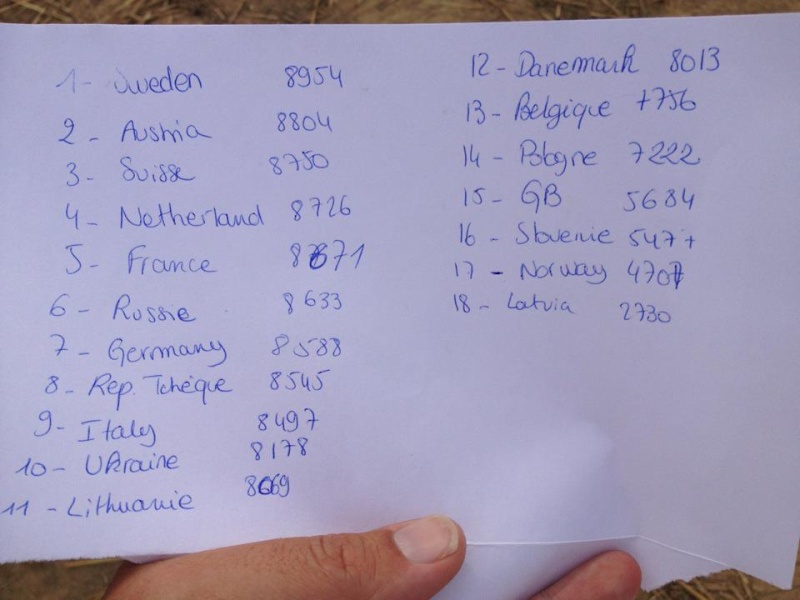 1- Sweden 8954
2 - Austria 8804
3 - Suisse 8750
4 - Netherland 8726
5 - France 8671
6 - Russie 8633
7 - Germany 8588
8 - Rep. Tchéque 8545
9 - Italy 8497
10 - Ukraine 8178
11 - Lithuanie 8069
12 - Danemark 8013
13 - Belgique 7756
14 - Pologne 7222
15 - GB 5684
16 - Slovenie 5477
17 - Norway 4707
18 - Latvia 2730